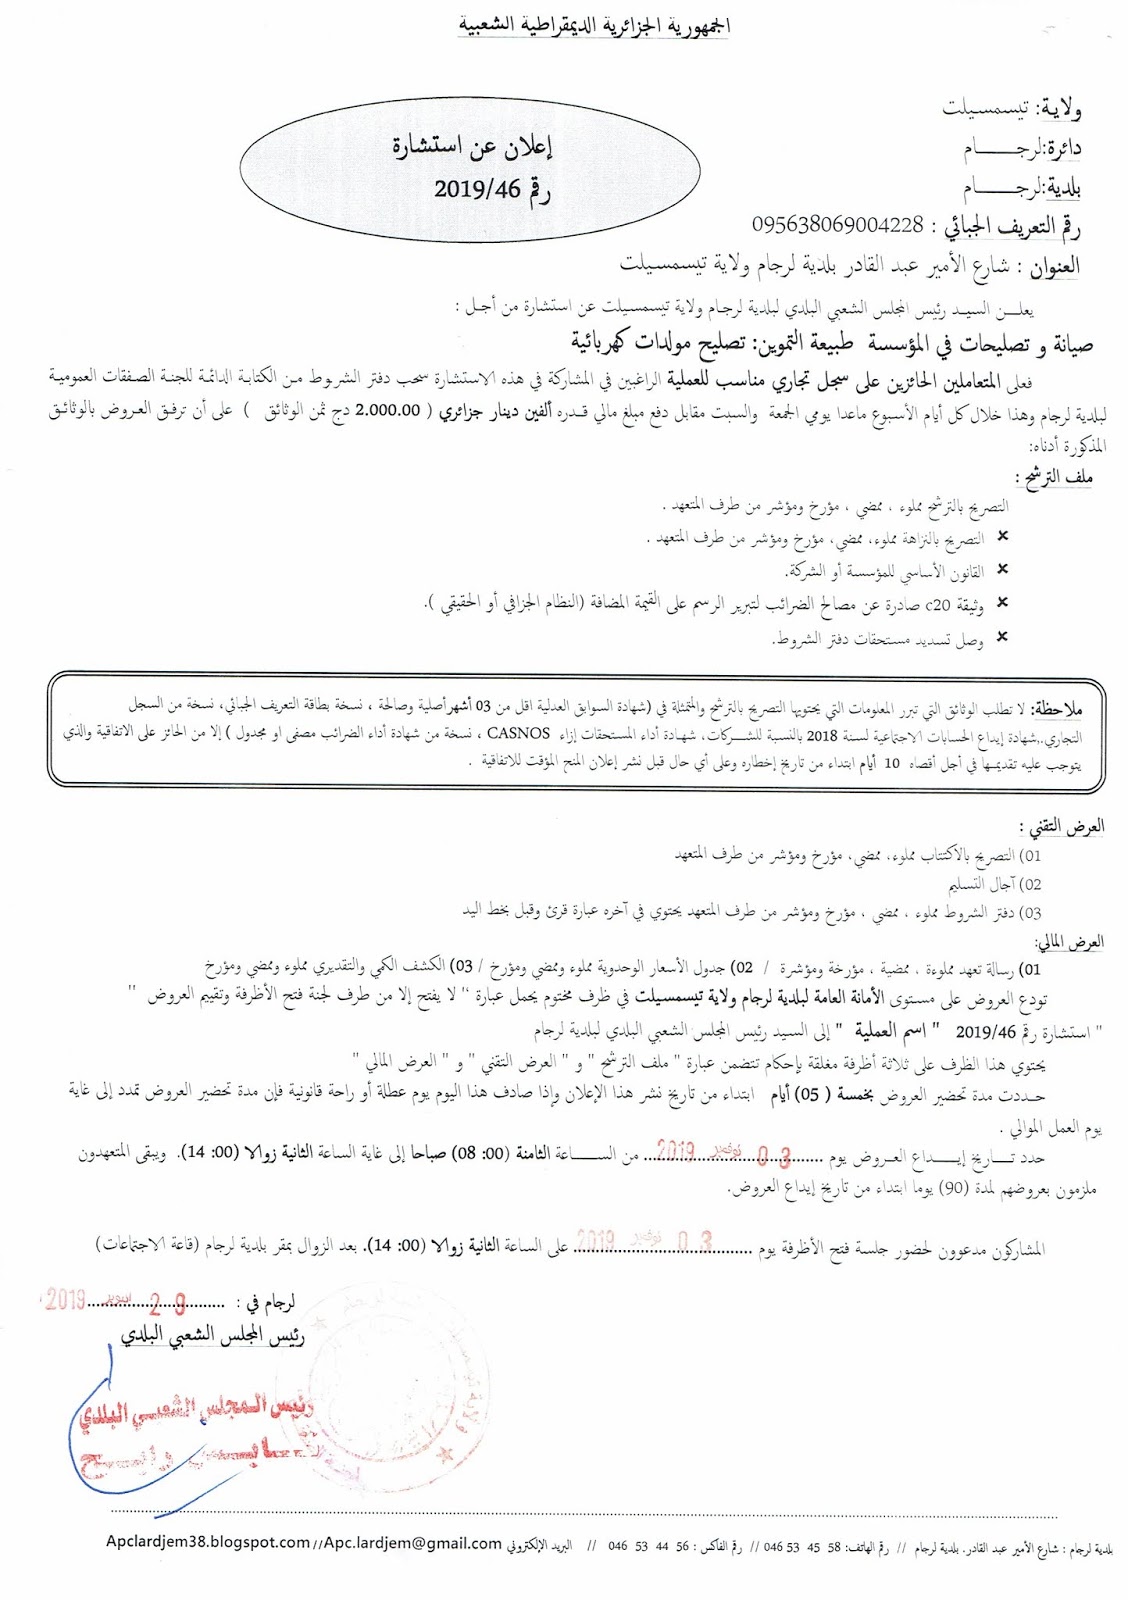 الجمهورية الجزائرية الديمقراطية الشعبية
ولاية: تيسمسيلت
دائرة:لرجـــــــام
بلدية:لرجـــــــام
إعلان عن استشارة
رقم 2019/46
رقم التعريف الجبائي : 095638069004228
العنوان : شارع الأمير عبد القادر بلدية لرجام ولاية تيسمسيلت
يعلـــن السيـد رئيس المجلس الشعبي البلدي لبلدية لرجـام ولاية تيسمسيلت عن استشارة من أجـل :
صيانة و تصليحات في المؤسسة طبيعة التموين: تصليح مولدات كهربائية
فعلى المتعاملين الحائزين على سجل تجاري مناسب للعملية الراغبين في المشاركة في هذه الاستشارة سحب دفتر الشروط من الكتابة الدائمة للجنة الصفقات العمومية
لبلدية لرجام وهذا خلال كل أيام الأسبوع ماعدا يومي الجمعة والسبت مقابل دفع مبلغ مالي قـدره ألفين دينار جزائري ( 2.000.00 دج ثمن الوثائق ) على أن ترفـق العـروض بالوثائق
المذكورة أدناه:
ملف الترشح :
التصريح بالترشح مملوء ، ممضي ، مؤرخ ومؤشر من طرف المتعهد .
✘ التصريح بالنزاهة مملوء، ممضي، مؤرخ ومؤشر من طرف المتعهد .
✘ القانون الأساسي للمؤسسة أو الشركة.
✘ وثيقة c20 صادرة عن مصالح الضرائب لتبرير الرسم على القيمة المضافة (النظام الجزافي أو الحقيقي ).
✘ وصل تسديد مستحقات دفتر الشروط.
ملاحظة: لا تطلب الوثائق التي تبرر المعلومات التي يحتويها التصريح بالترشح والمتمثلة في (شهادة السوابق العدلية اقل من 03 أشهر أصلية وصالحة ، نسخة بطاقة التعريف الجبائي، نسخة من السجل
التجاري.,شهادة إيداع الحسابات الاجتماعية لسنة 2018 بالنسبة للشركات، شهادة أداء المستحقات إزاء CASNOS ، نسخة من شهادة أداء الضرائب مصفى او مجدول ) إلا من الحائز على الاتفاقية والذي
يتوجب عليه تقديمـها في أجل أقصاه 10 أيام ابتداء من تاريخ إخطاره وعلى أي حال قبل نشر إعلان المنح المؤقت للاتفاقية .
العرض التقني :
01) التصريح بالاكتتاب مملوء، ممضي، مؤرخ ومؤشر من طرف المتعهد
02) آجال التسليم
03) دفتر الشروط مملوء ، ممضي ، مؤرخ ومؤشر من طرف المتعهد يحتوي في آخره عبارة قرئ وقبل بخط اليد
العرض المالي:
01) رسالة تعهد مملوءة ، ممضية ، مؤرخة ومؤشرة / 02) جدول الأسعار الوحدوية مملوء وممضي ومؤرخ / 03) الكشف الكمي والتقديري مملوء وممضي ومؤرخ
تودع العروض على مستوى الأمانة العامة لبلدية لرجام ولاية تيسمسيلت في ظرف مختوم يحمل عبارة '' لا يفتح إلا من طرف لجنة فتح الأظرفة وتقييم العروض ''
" استشارة رقم 2019/46 " اسم العملية " إلى السيد رئيس المجلس الشعبي البلدي لبلدية لرجام
يحتوي هذا الظرف على ثلاثة أظرفة مغلقة بإحكام تتضمن عبارة " ملف الترشح " و " العرض التقني " و " العرض المالي "
حــددت مدة تحضير العروض بخمسة ( 05) أيام ابتداء من تاريخ نشر هذا الإعلان وإذا صادف هذا اليوم يوم عطلة أو راحة قانونية فإن مدة تحضير العروض تمدد إلى غاية
يوم العمل الموالي .
حدد تـــاريخ إيـــداع العـروض يوم 03 نوفمبر 2019 من الســـاعة الثامنة (00: 08) صباحا إلى غاية الساعة الثانية زوالا (00: 14). ويبقى المتعهدون
ملزمون بعروضهم لمدة (90) يوما ابتداء من تاريخ إيداع العروض.
المشاركون مدعوون لحضور جلسة فتح الأظرفة يوم 03 نوفمبر 2019 على الساعة الثانية زوالا (00: 14). بعد الزوال بمقر بلدية لرجام (قاعة الاجتماعات)
لرجام في : 29 اكتوبر 2019
رئيس المجلس الشعبي البلدي
رئيس المجلس الشعبي البلدي
رابح
بلدية لرجام : شارع الأمير عبد القادر. بلدية لرجام // رقم الهاتف: 58 45 53 046 // رقم الفاكس : 56 44 53 046 // البريد الإلكتروني Apclardjem38.blogspot.com//Apc.lardjem@gmail.com